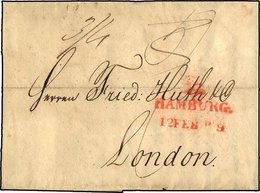 3/4
Herren Fried: Huth & C
HAMBURG.
12 FEB
London.